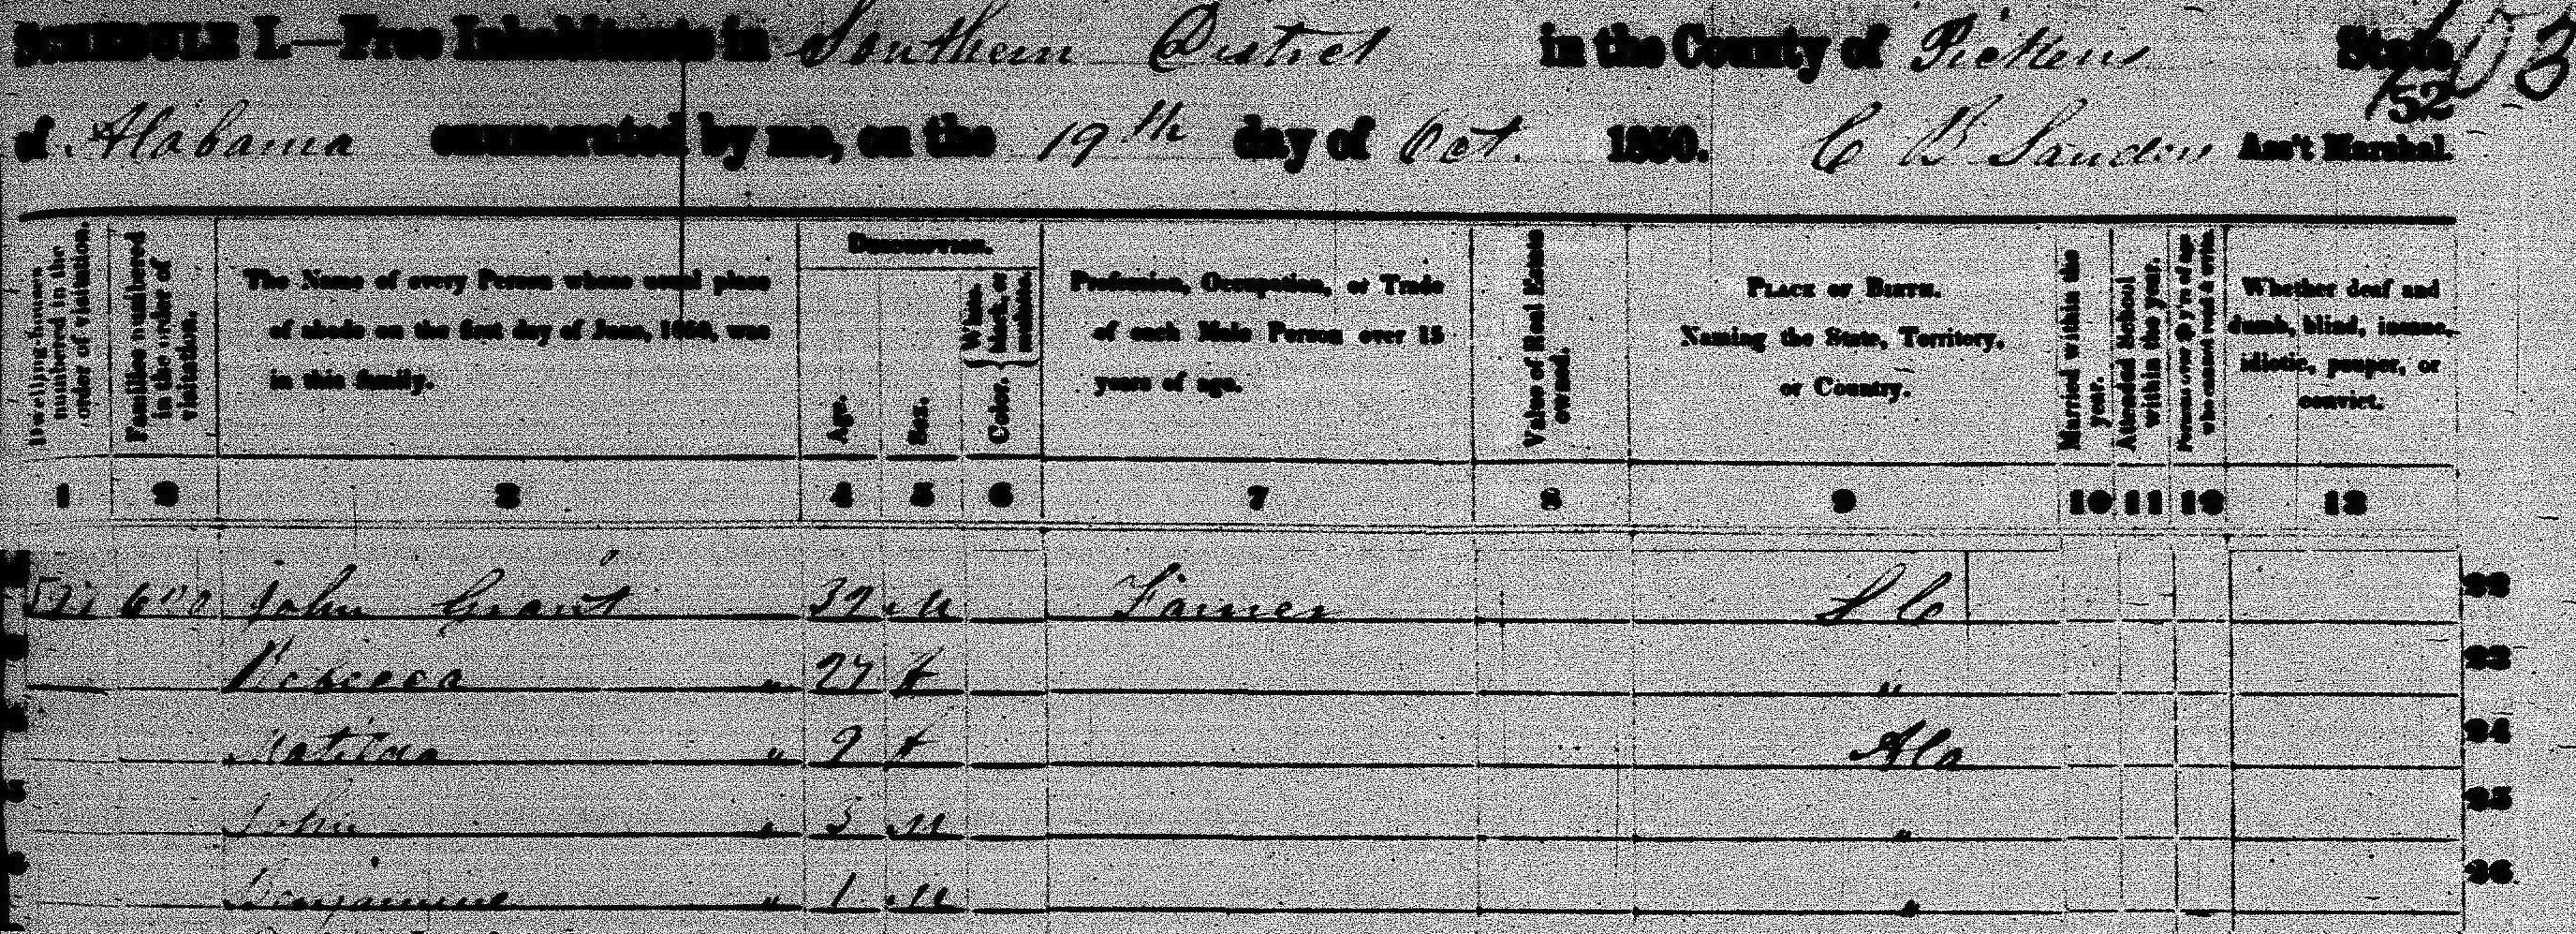 SCHEDULE I.—Free Inhabitants in Southern District in the County of Pickens State
of Alabama enumerated by me, on the 19th day of Oct. 1850. C B Ass't Marshal.
152
Dwelling-houses numbered in the order of visitation.
Families numbered in the order of visitation.
The Name of every Person whose usual place of abode on the first day of June, 1850, was in this family.
Description.
Age.
Sex.
Color. { White, black, or mulatto.
Profession, Occupation, or Trade of each Male Person over 15 years of age.
Value of Real Estate owned.
Place of Birth. Naming the State, Territory, or Country.
Married within the year.
Attended School within the year.
Persons over 20 y'rs of age who cannot read & write.
Whether deaf and dumb, blind, insane, idiotic, pauper, or convict.
1 2 3 4 5 6 7 8 9 10 11 12 13
John Grant M Farmer S C
Rebecca " 27 f "
" f Ala 24
John " 5 M " 25
" 1 M " 26